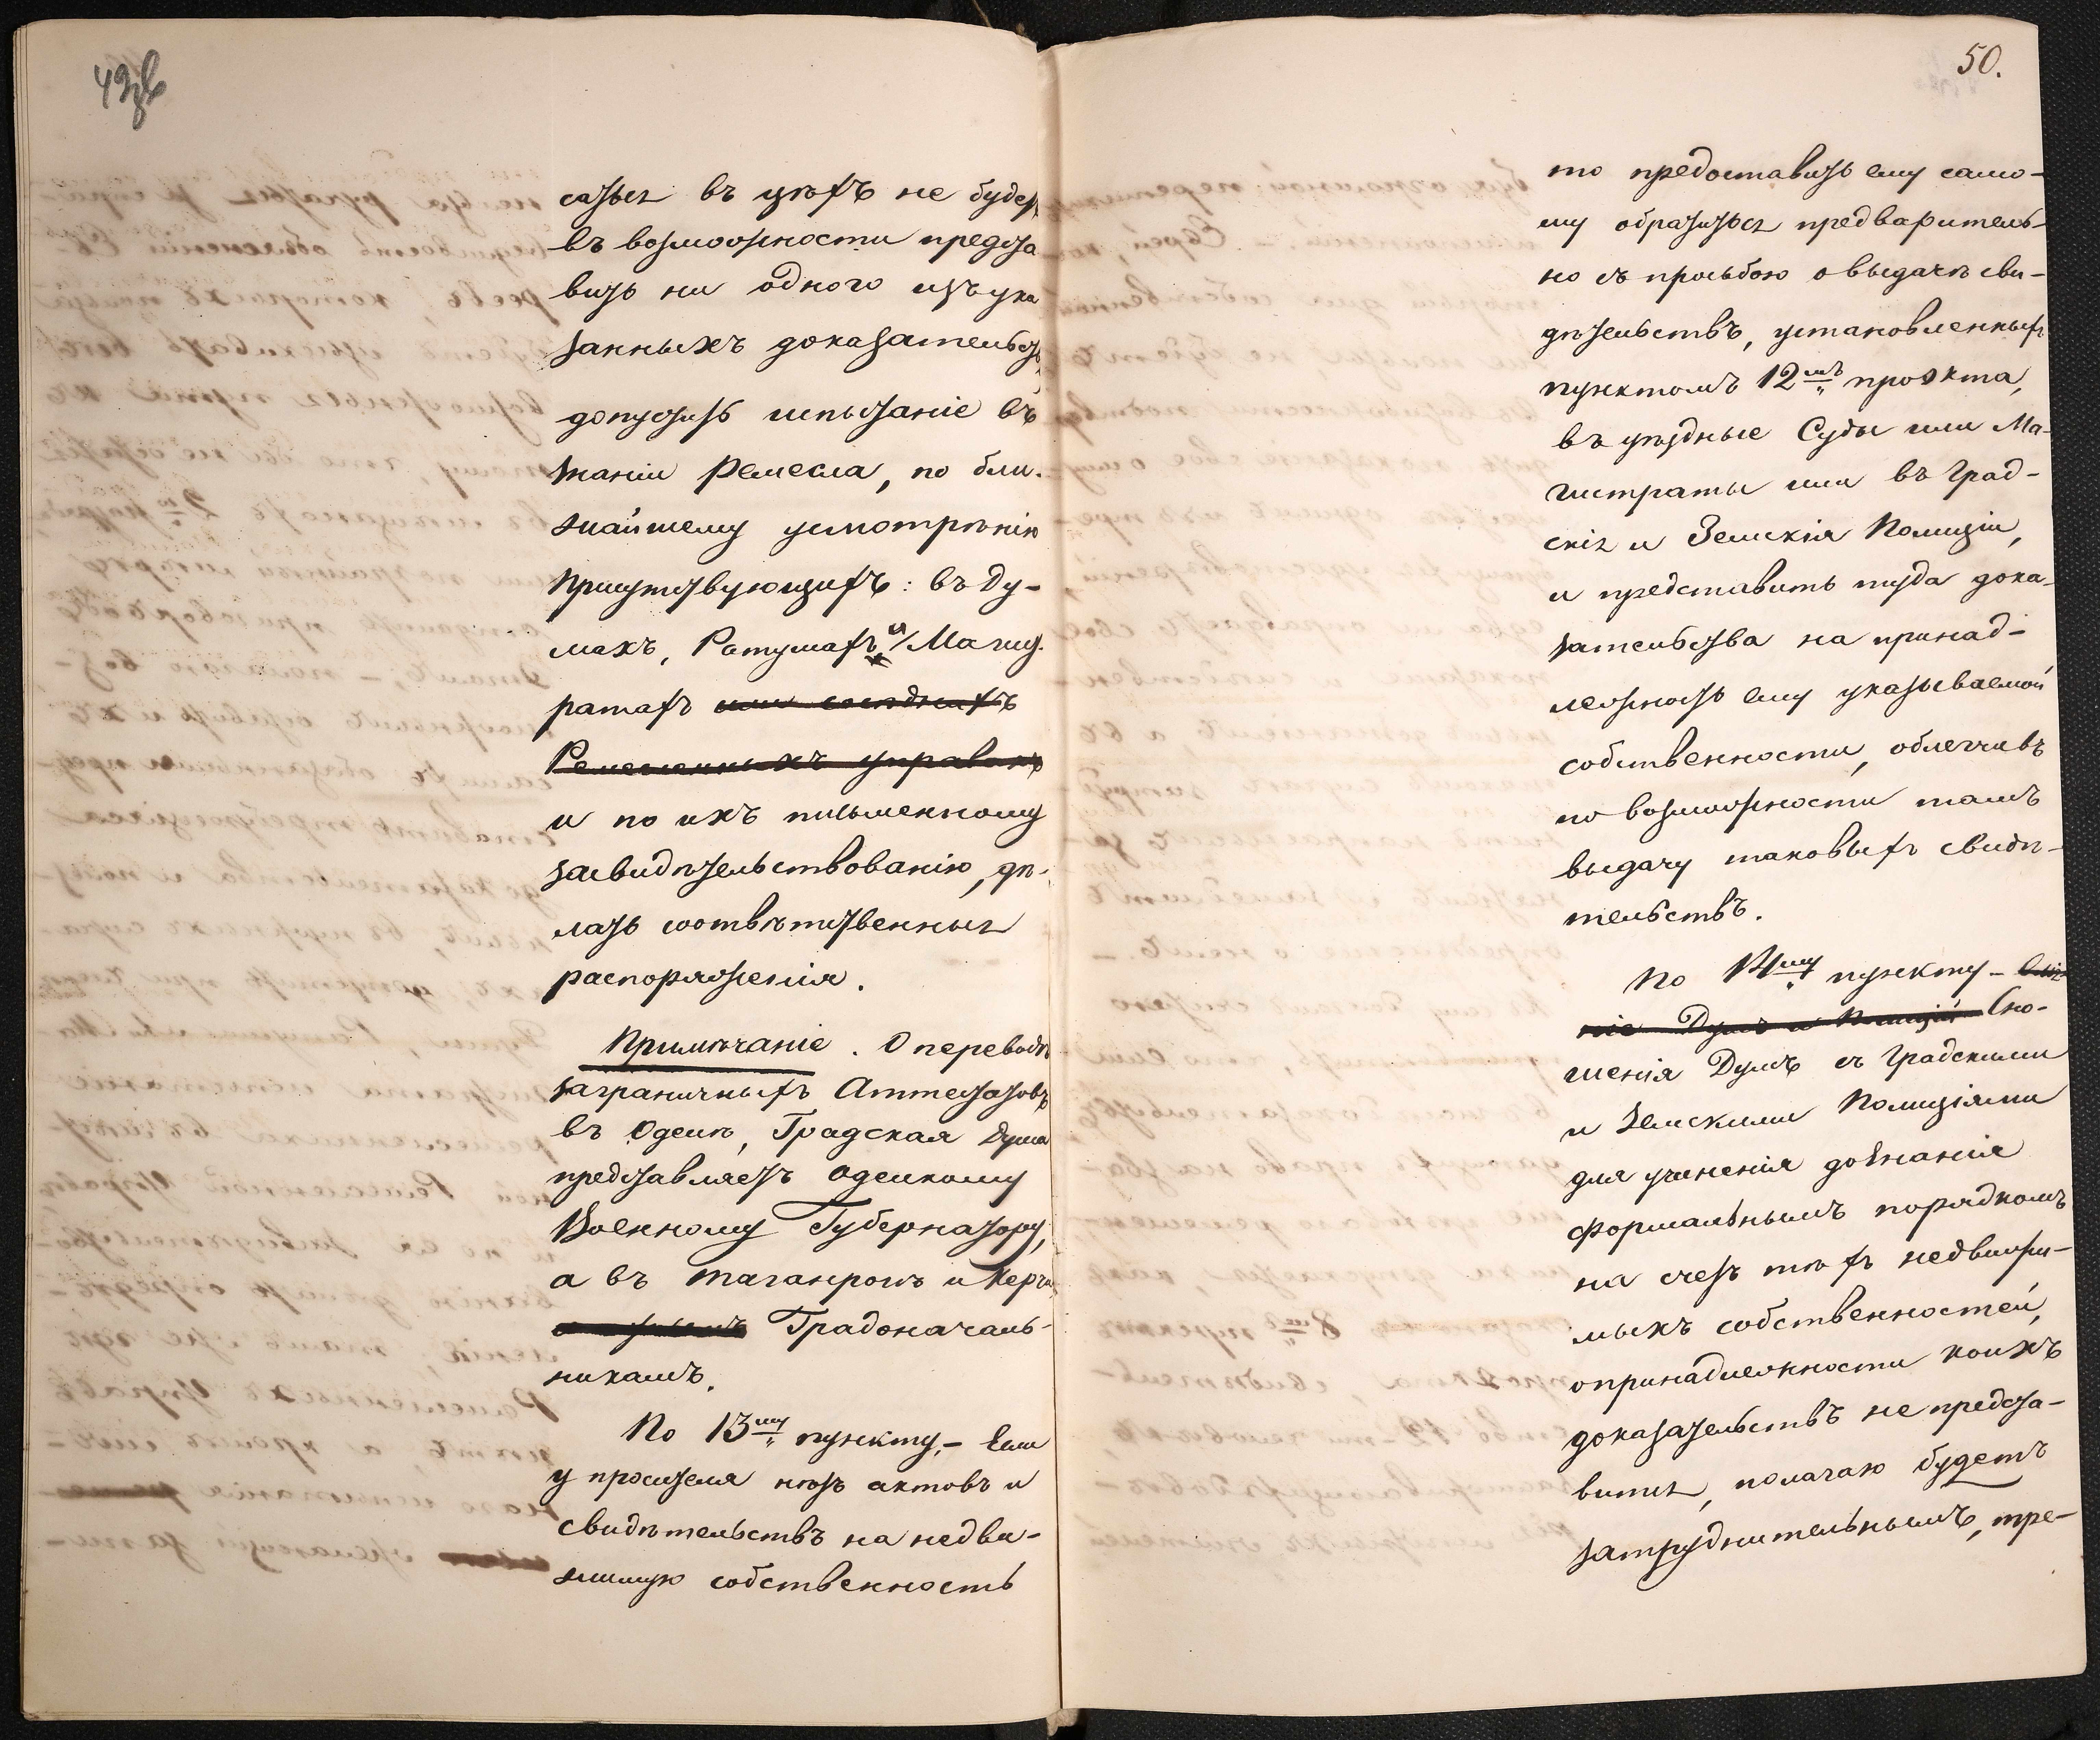 49об
саться въ цѣхъ не будетъ
въ возможности предста
вить ни одного изъ ука
занныхъ доказательствъ,
допустить испытаніе въ
знаніи Ремесла, по бли-
жайшему усмотрѣнію
присутствующихъ: въ Ду-
махъ, Ратушахъ и Магист
ратахъ или
Ремесленныхъ управахъ
и по ихъ письменному
засвидѣтельствованію, дѣ-
лать соотвѣтственныя
распоряженія.
Примѣчаніе. О переводѣ
заграничныхъ Аттестатовъ
въ Одессѣ, Градская Дума
представляетъ Одесскому
Военному Губернатору,
а въ Таганрогѣ и Керчи
Градоначаль-
никамъ.
По 13му пункту,- Если
у просителя нѣтъ актовъ и
свидѣтельствъ на недви-
жимую собственность
50.
то предоставить ему само-
му обратиться предваритель-
но съ просьбою о выдачѣ сви-
дѣтельствъ, установленныхъ
пунктомъ 12мъ проэкта,
въ уѣздные Суды или Ма-
гистраты или въ Град-
скія и Земскія Полиціи,
и представить туда дока-
зательства на принад-
лежность ему указываемой
собственности, облегчивъ
по возможности тамъ
выдачу таковыхъ свидѣ-
тельствъ.
По 14му пункту -
ніе Думъ и Полицій Сно-
шенія Думъ съ Градскими
и Земскими Полиціями
для учиненія дознанія
формальнымъ порядкомъ
на счетъ тѣхъ недвижи-
мыхъ собственностей,
о принадлежности коихъ
доказательствъ не предста-
вится, полагаю будетъ
затруднительнымъ, тре-